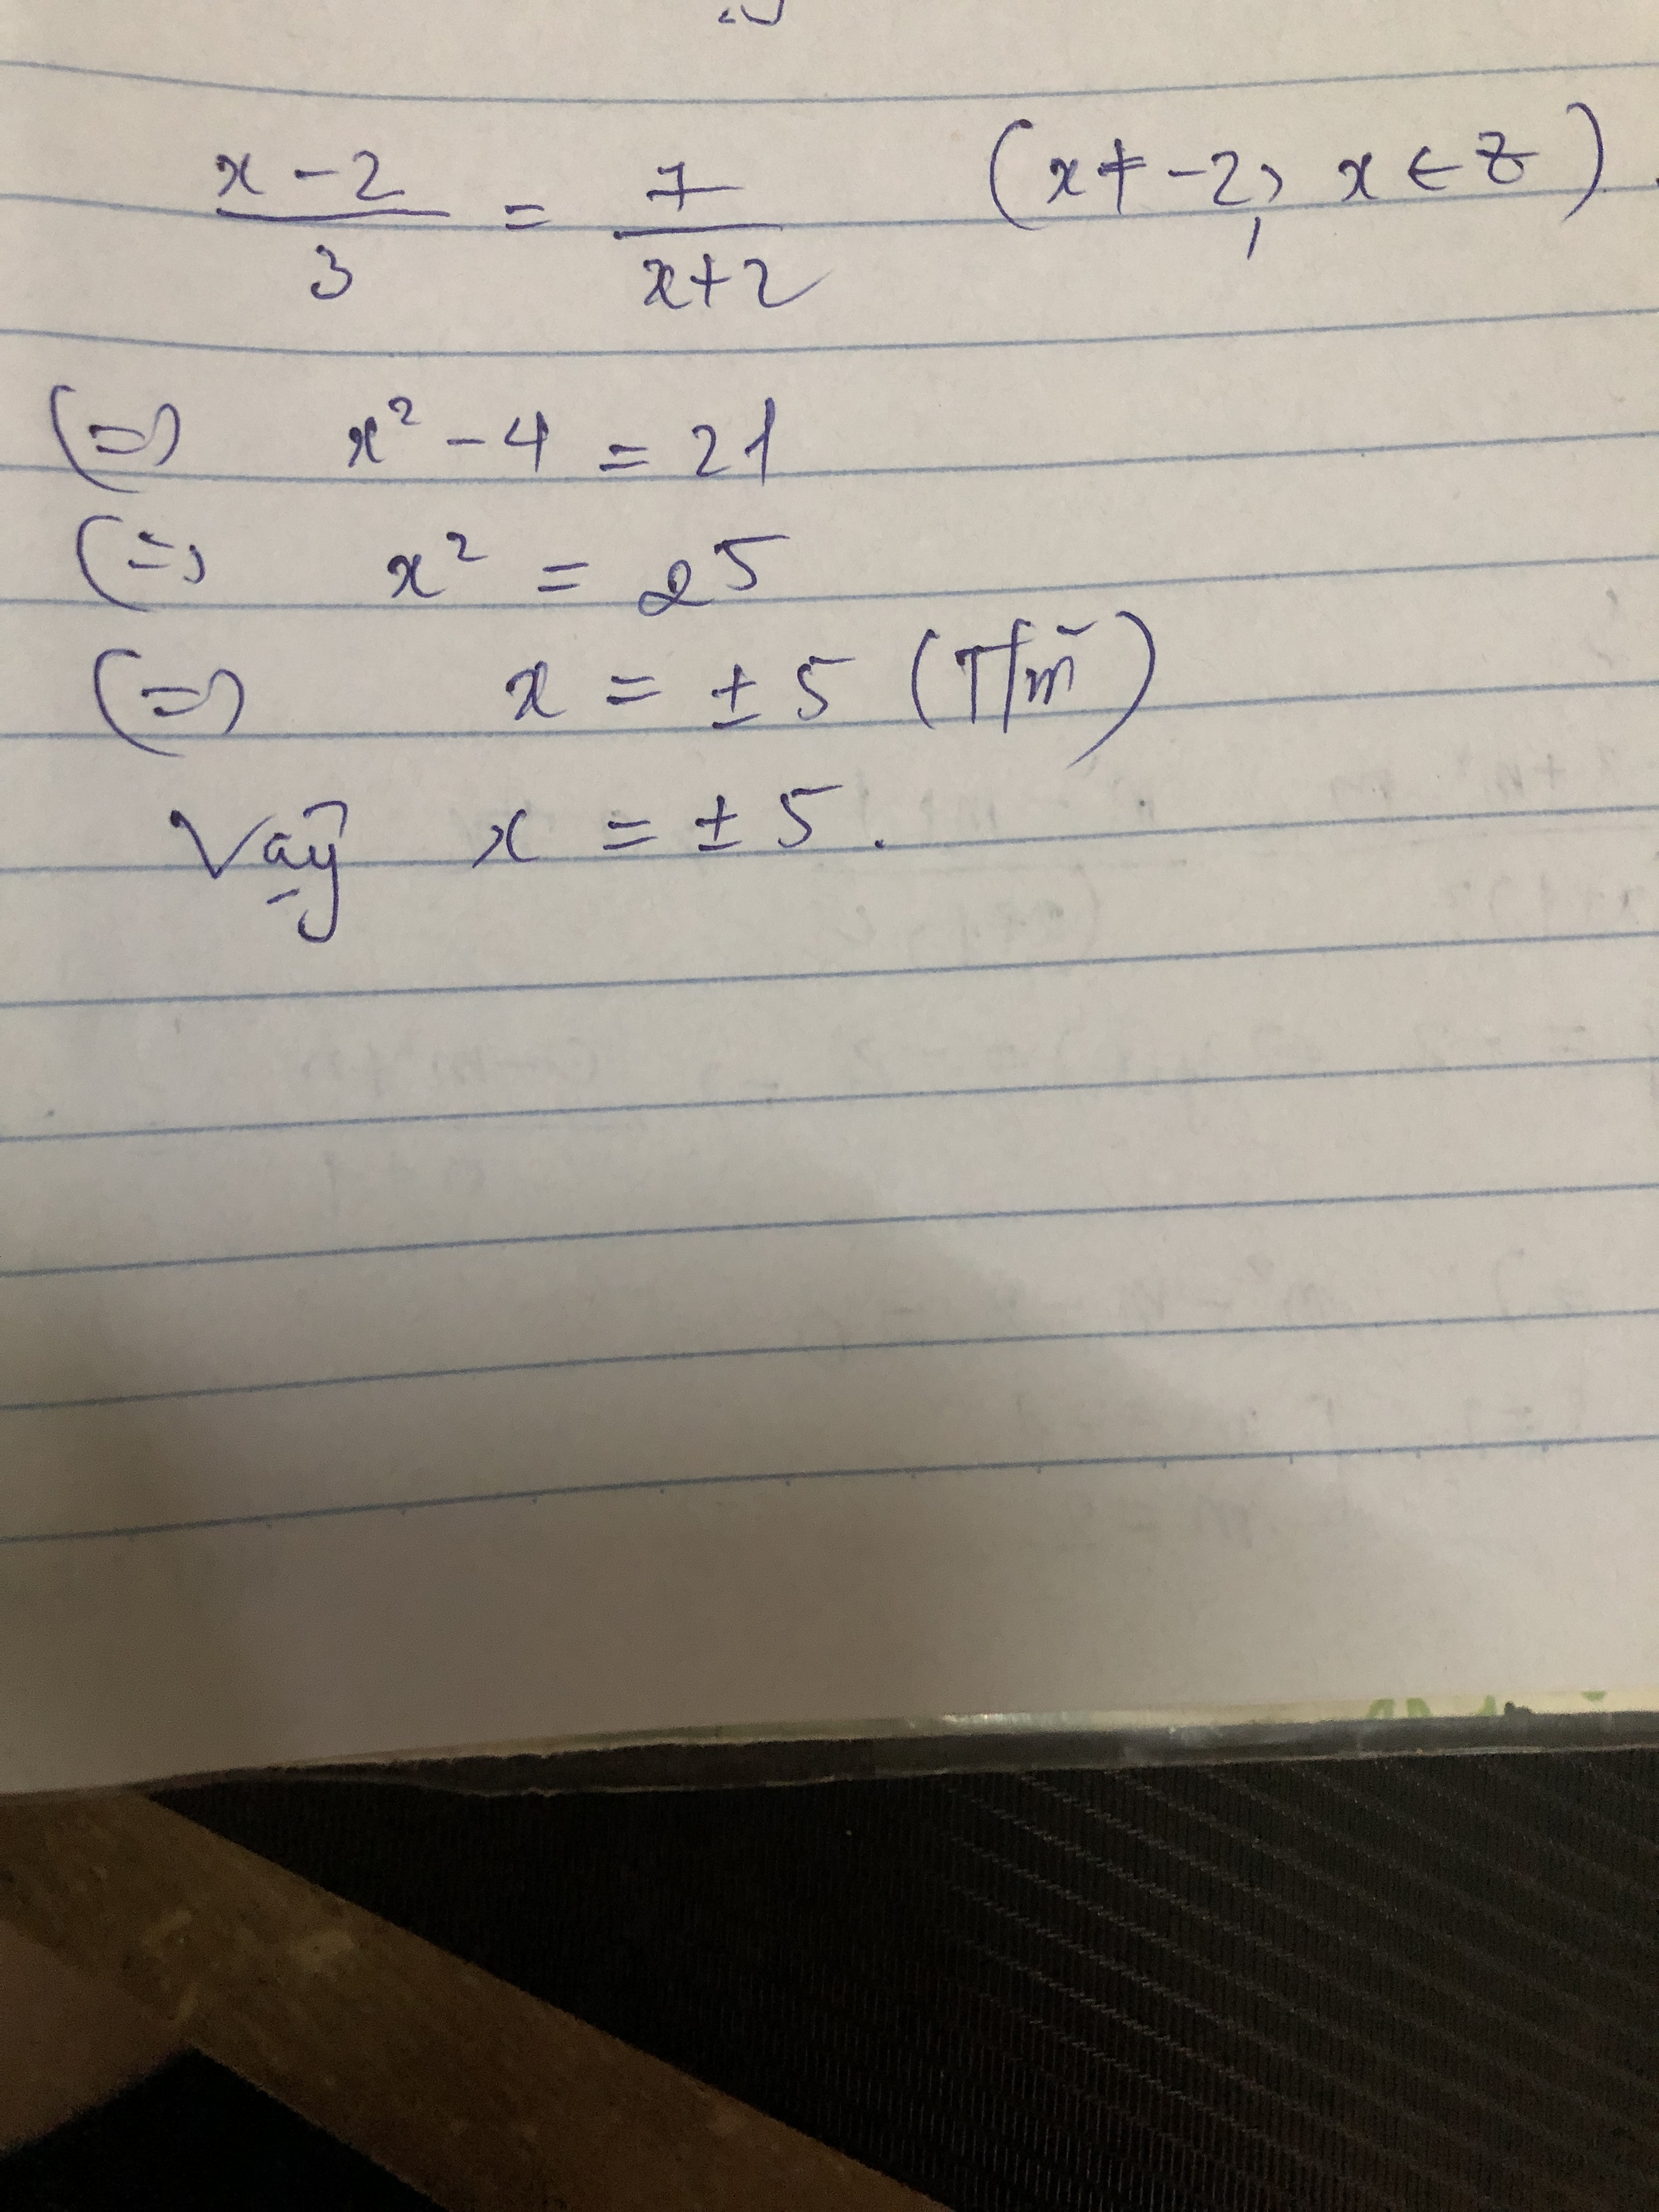 x - 2 / 3 = 7 / x + 2 (x ≠ -2; x ∈ Z).
(=) x² - 4 = 21
(=) x² = 25
(=) x = ± 5 (T/m)
Vậy x = ± 5.